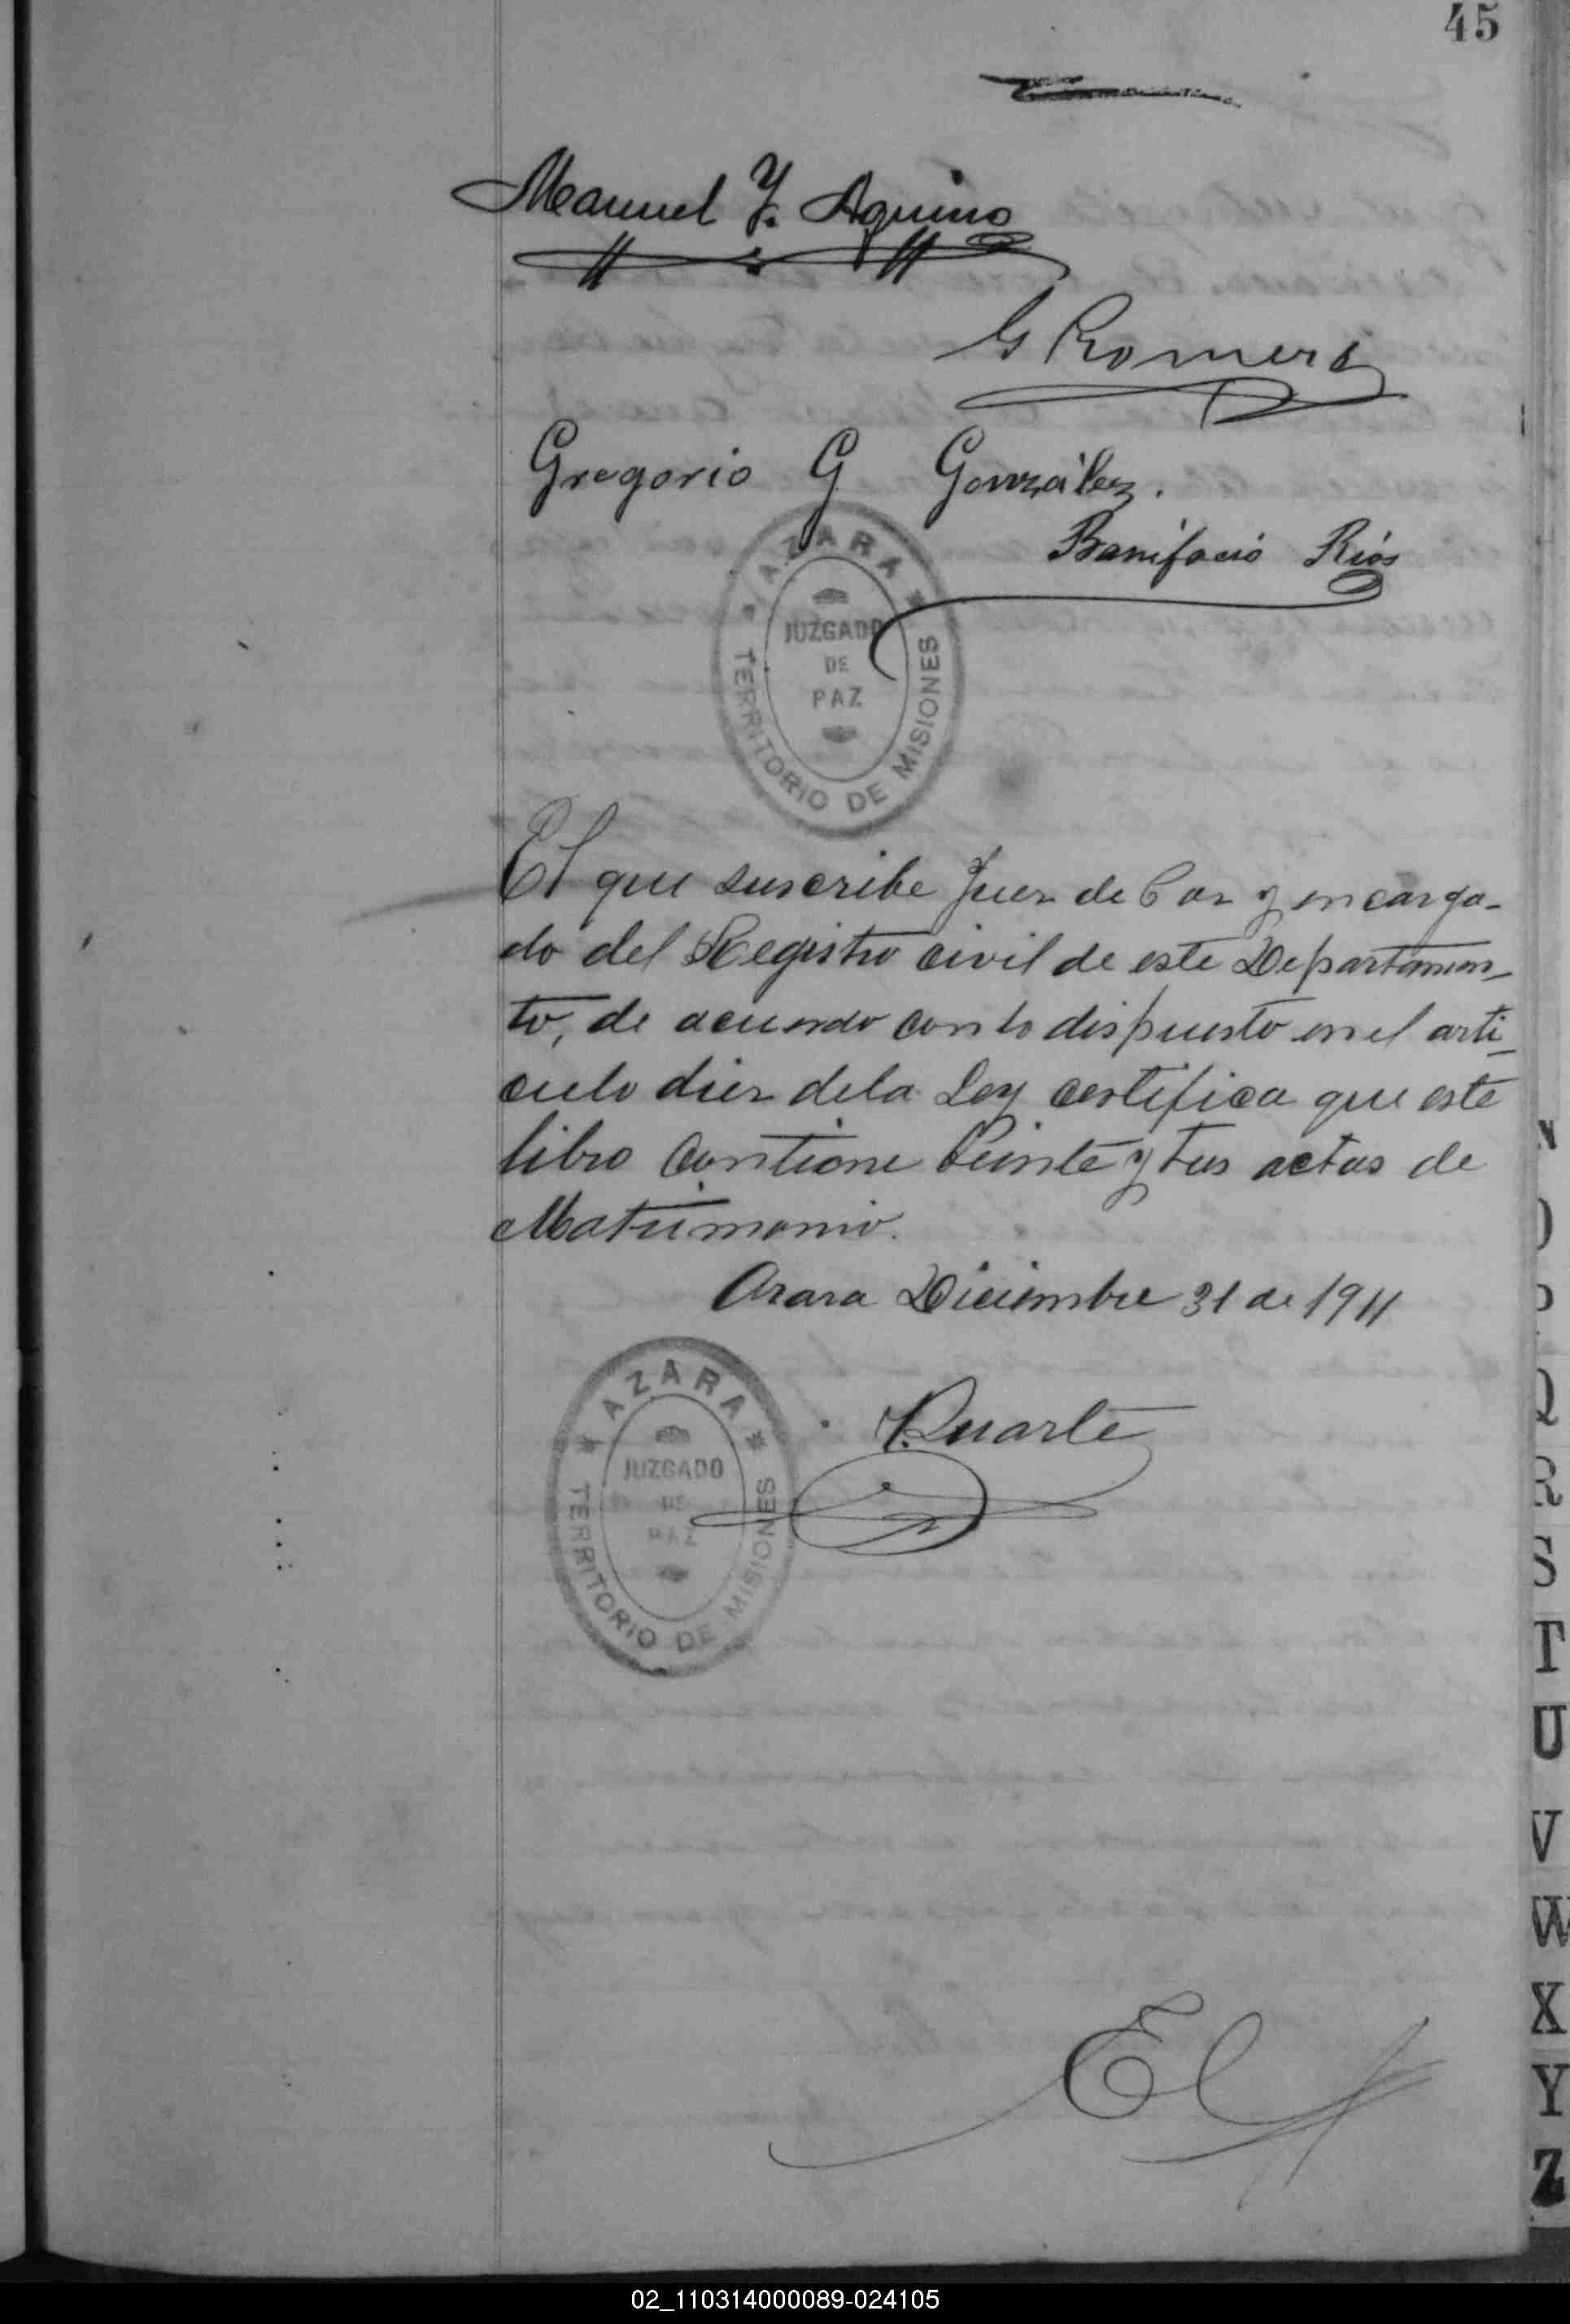 45
Manuel Y. Aquino
G Romero
Gregorio G González.
Bonifacio Ríos
* AZARA *
JUZGADO
DE
PAZ
TERRITORIO DE MISIONES
El que suscribe Juez de Paz y encarga-
do del Registro civil de este Departamen-
to, de acuerdo con lo dispuesto en el arti-
culo diez de la Ley certifica que este
libro contiene Veinte y tres actas de
Matrimonio.
Azara Diciembre 31 de 1911
* AZARA *
JUZGADO
DE
PAZ
TERRITORIO DE MISIONES
Duarte
El
N
O
P
Q
R
S
T
U
V
W
X
Y
Z
02_110314000089-024105